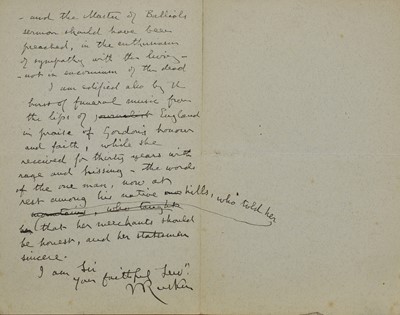 - and the Master of Balliol's
sermon should have been
preached, in the enthusiasm
of sympathy with the living -
- not in encomium of the dead
I am edified also by the
burst of funeral music from
the lips of journalist England
in praise of Gordon's honour
and faith, while she
received for thirty years with
rage and hissing - the words
of the one man, now at
rest among his native hills, who told her
mountains, who taught
her that her merchants should
be honest, and her statesmen
sincere.
I am Sir
your faithful Servt.
JRuskin